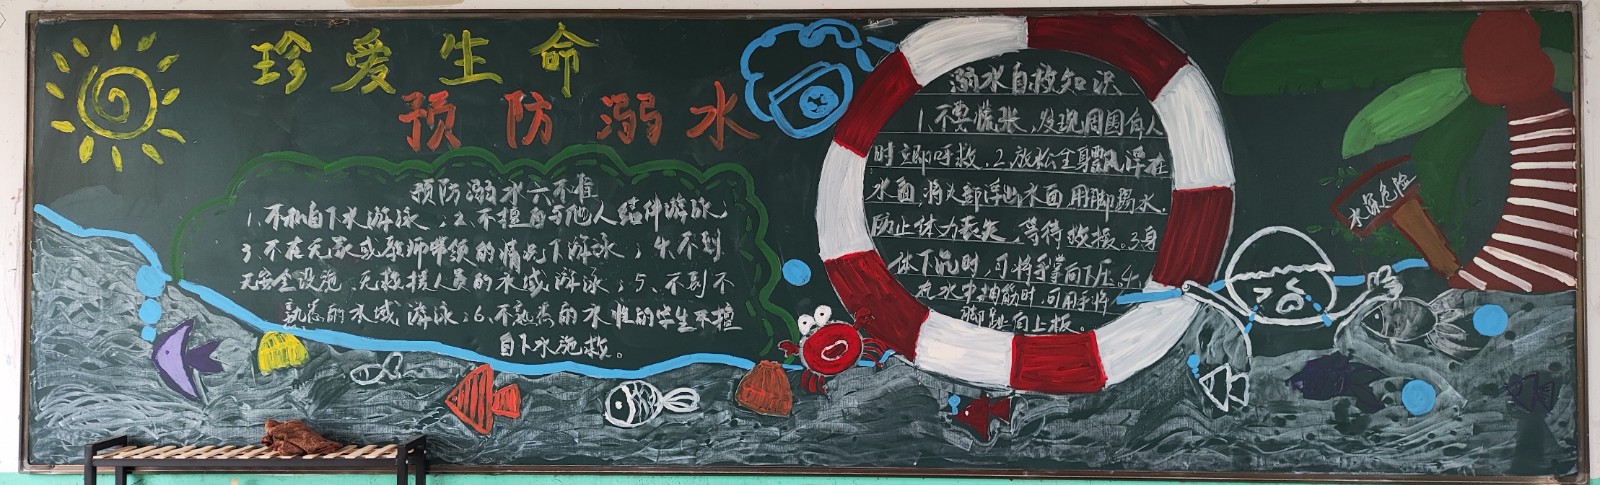 珍爱生命
预防溺水
预防溺水六不准
1、不私自下水游泳；2、不擅自与他人结伴游泳
3、不在无家长或教师带领的情况下游泳；4、不到
无安全设施、无救援人员的水域游泳；5、不到不
熟悉的水域游泳；6、不熟悉的水性的学生不擅
自下水施救。
溺水自救知识
1、不要慌张，发现周围有人
时立即呼救、2、放松全身飘浮在
水面，将头部浮出水面用脚踢水，
防止体力丧失，等待救援。3、身
体下沉时，可将手掌向下压、4、
在水中抽筋时，可用手将
脚趾向上板。
水深危险